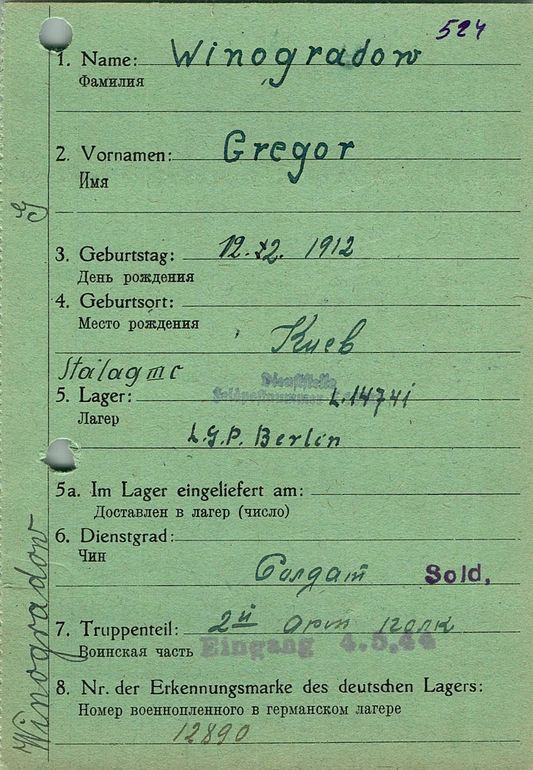 524
1. Name: Winogradow
Фамилия
2. Vornamen: Gregor
Имя
3. Geburtstag: 12. 1912
День рождения
4. Geburtsort:
Место рождения
Киев
Stalag III C
Dienststelle
5. Lager: Feldpostnummer L.14741
Лагер
L.G.P. Berlin
5a. Im Lager eingeliefert am:
Доставлен в лагер (число)
6. Dienstgrad:
Чин
Солдат Sold,
7. Truppenteil: 2й арт полк
Воинская часть Eingang 4.5.44
8. Nr. der Erkennungsmarke des deutschen Lagers:
Номер военнопленного в германском лагере
12890
Winogradow G